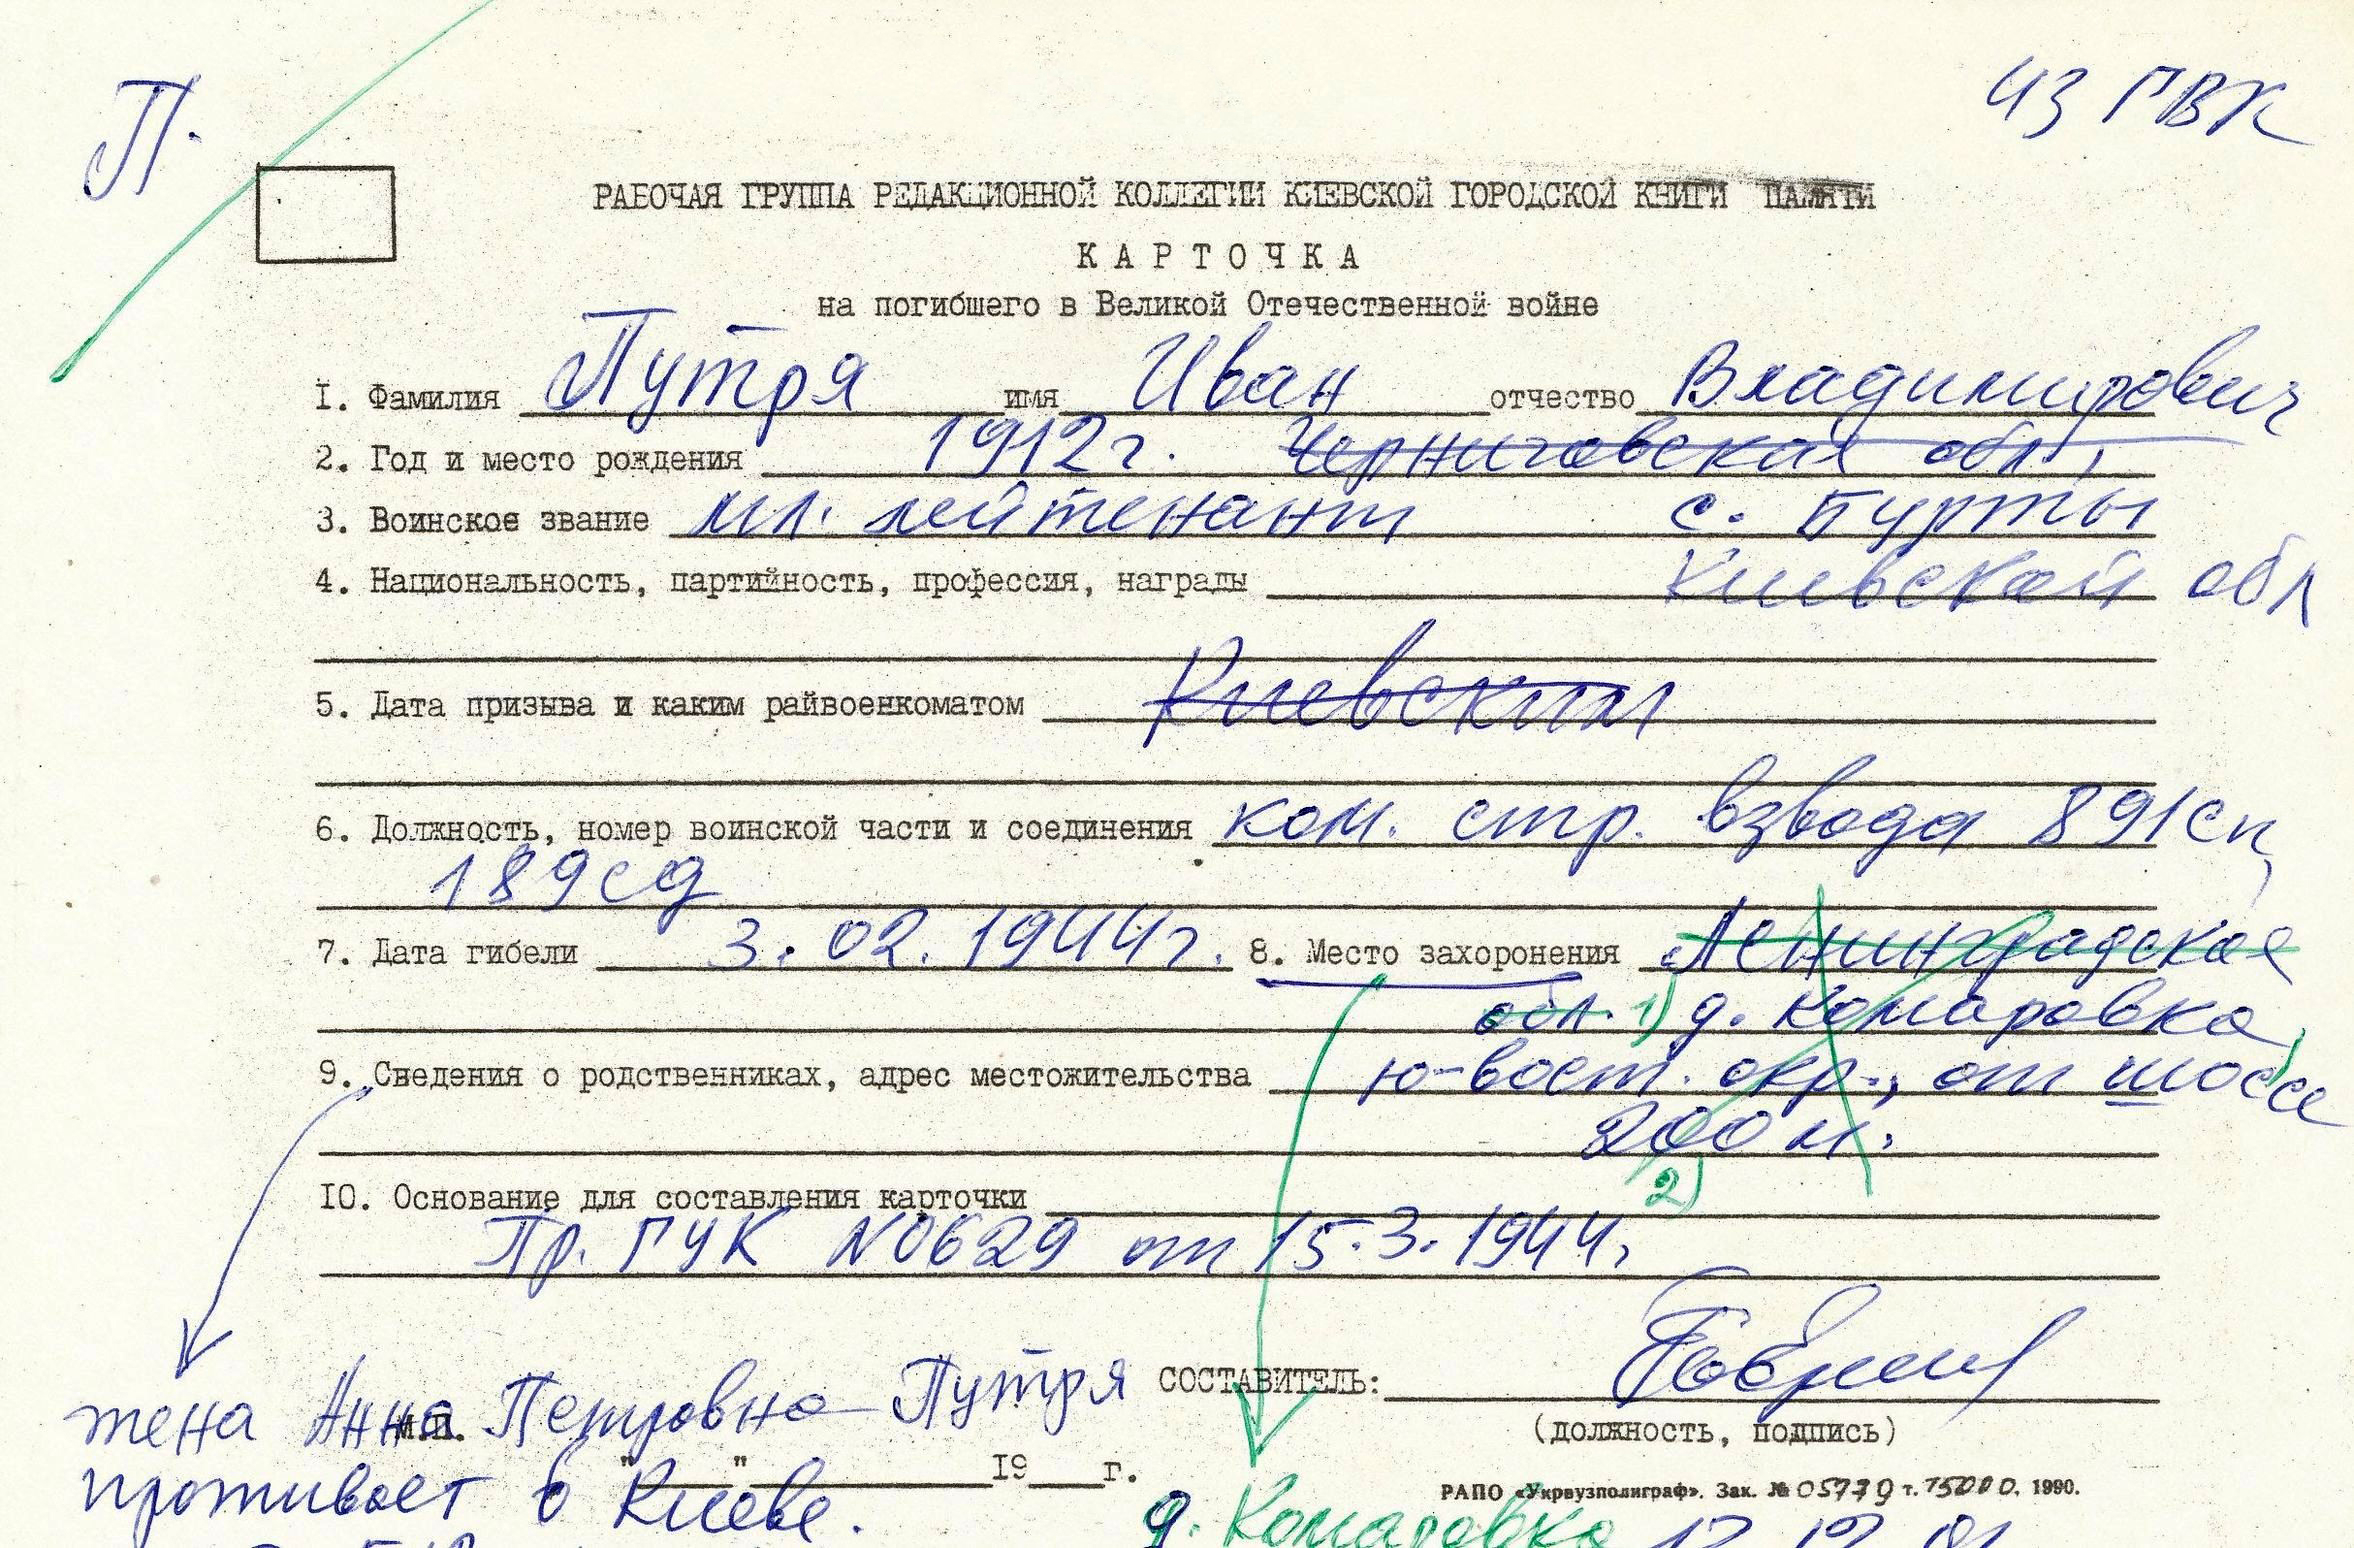 П.
43 ГВК
РАБОЧАЯ ГРУППА РЕДАКЦИОННОЙ КОЛЛЕГИИ КИЕВСКОЙ ГОРОДСКОЙ КНИГИ ПАМЯТИ
КАРТОЧКА
на погибшего в Великой Отечественной войне
I. Фамилия Путря имя Иван отчество Владимирович
2. Год и место рождения 1912г. Черниговская обл.,
3. Воинское звание мл. лейтенант с. Бурты
4. Национальность, партийность, профессия, награды Киевской обл
5. Дата призыва и каким райвоенкоматом Киевским
6. Должность, номер воинской части и соединения ком. стр. взвода 891сп,
189сд
7. Дата гибели 3.02.1944г. 8. Место захоронения Ленинградская
обл. 1) д. Комаровка,
9. Сведения о родственниках, адрес местожительства ю-вост. окр., от шоссе
200 м.
2)
10. Основание для составления карточки
Пр. ГУК N0629 от 15.3.1944.
СОСТАВИТЕЛЬ:
жена Анна Петровна Путря
М.П.
(должность, подпись)
" " 19 г.
проживает в Киеве.
РАПО «Укрвузполиграф». Зак. № 05779 т. 15000. 1990.
д. Комаровка